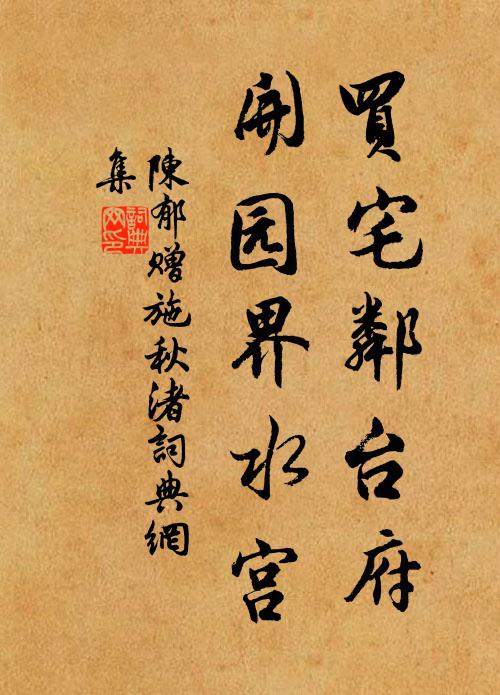 買宅鄰台府
開园界水宫
陳郁贈施秋渚詞典網
集
詞典
网印